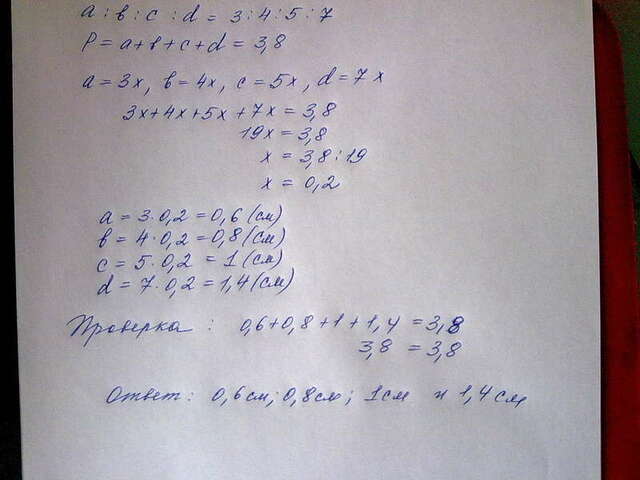 a : в : c : d = 3 : 4 : 5 : 7
P = a+в+c+d = 3,8
a = 3x, в = 4x, c = 5x, d = 7x
3x+4x+5x+7x = 3,8
19x = 3,8
x = 3,8 : 19
x = 0,2
a = 3·0,2 = 0,6 (см)
в = 4·0,2 = 0,8 (см)
c = 5·0,2 = 1 (см)
d = 7·0,2 = 1,4 (см)
Проверка : 0,6+0,8+1+1,4 = 3,8
3,8 = 3,8
Ответ: 0,6 см; 0,8 см; 1 см и 1,4 см